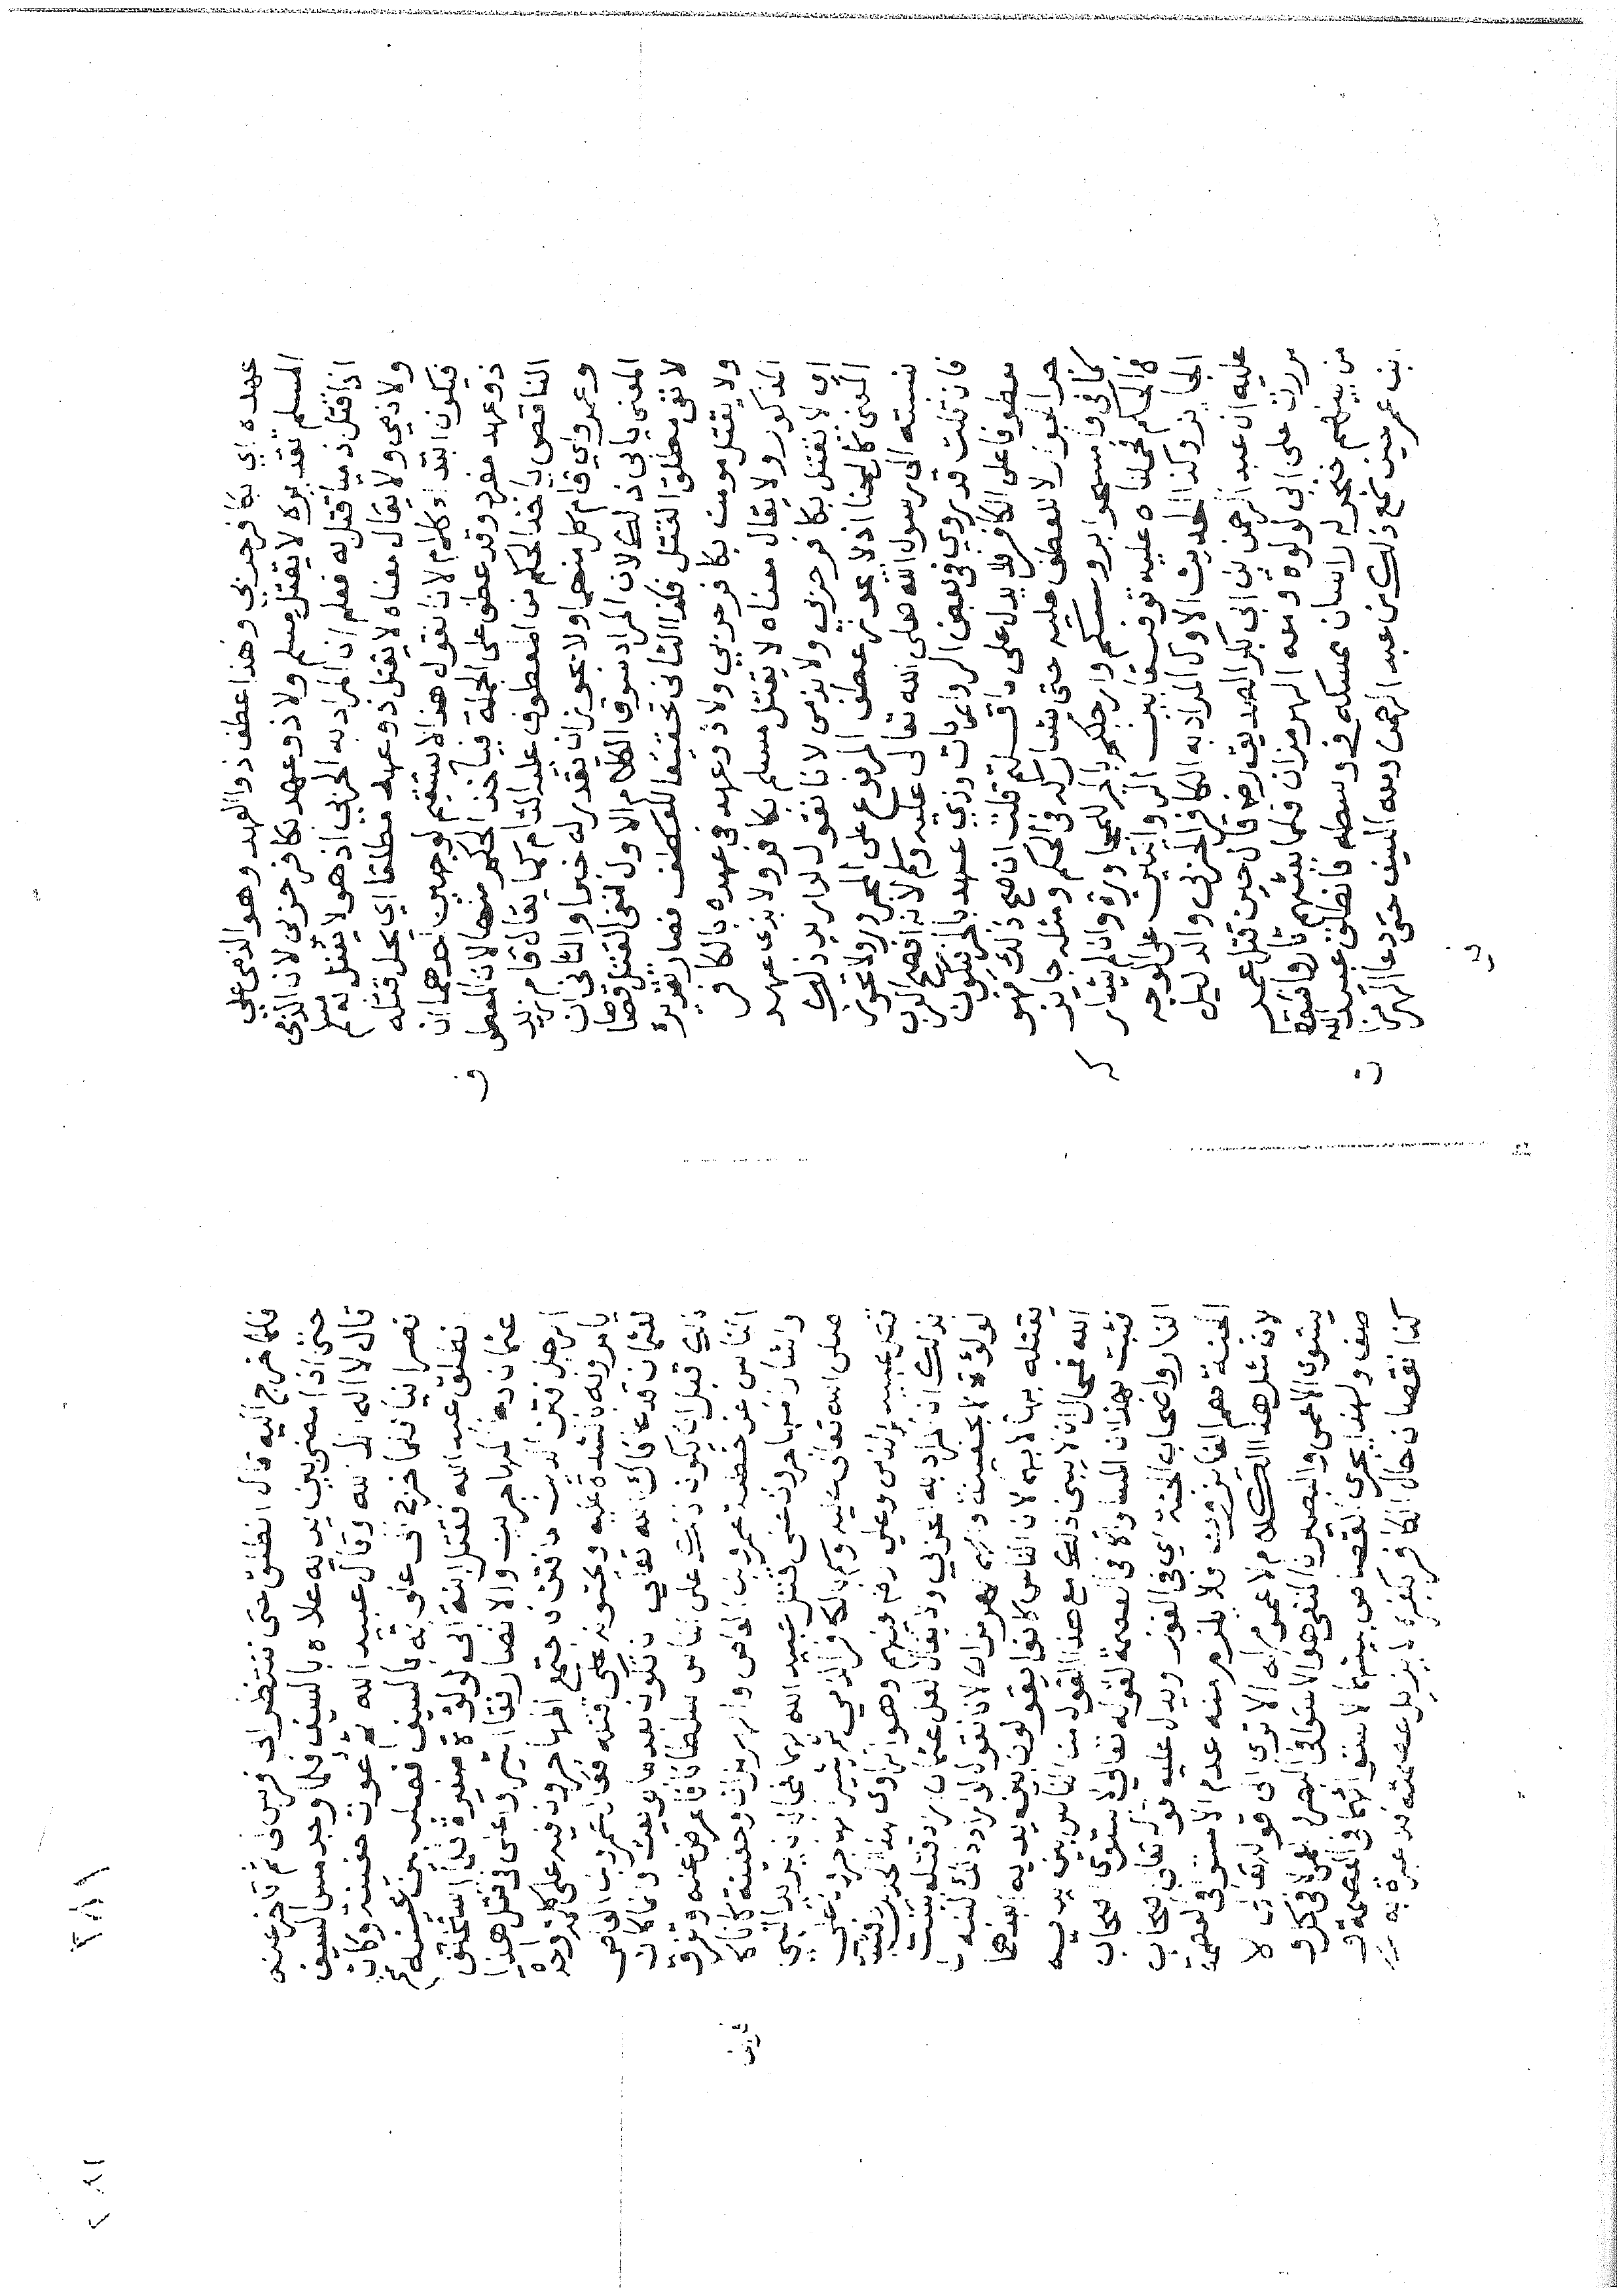 عهده اي بكافر حربي وهذا عطف ذو العهد وهو الذمي علي
المسلم تقديره لا يقتل مسلم ولا ذو عهد بكافر حربي لان الذمي
اذا قتل ذميا قتل به فعلم ان المراد به الحربي اذ هو لا يقتل به مسلم
ولا ذمي ولا يقال معناه لا يقتل ذو عهد مطلقا اي يحل قتله
فيكون ابتداء كلام لانا نقول هذا لا يستقيم لوجهين احدهما ان
ذو عهد مفرد وقد عطف على الجملة فيأخذ الحكم منها لان المعطوف
الناقص يأخذ الحكم من المعطوف عليه التام كما يقال قام زيد
وعمرو اي قام كل منهما ولا يجوز ان يقدر له خبرا والثاني ان
المعنى يابى ذلك لان المراد بسوق الكلام الاول نفي القتل قصاصا
لا نفي مطلق القتل فكذا الثاني تحقيقا للعطف فصار تقديره
ولا يقتل مومن بكافر حربي ولا ذو عهد في عهده بالكافر
المذكور ولا يقال معناه لا يقتل مسلم بكافر ولا بذي عهد
اي لا يقتل بكافر حربي ولا بذمي لانا نقول لو اريد ذلك
المعنى كان لحنا اذ لا يجوز عطف المرفوع على المجرور ولا يجوز
نسبته الي رسول الله صلى الله تعالى عليه وسلم لانه افصح العرب
فان قلت قد روي في بعض الروايات وذي عهد بالجر فيكون
معطوفا على الكافر فلا يدل على ما قلتم قلت ان صح ذلك فهو
جر الجوار لا للعطف عليه حتى يشاركه في الحكم ومثله جايز
كما في وامسحوا بروسكم وارجلكم بالجر للمجاورة وان لم يشارك
في الحكم فحملناه عليه توفيقا بين الروايتين على الوجه
الجايز وكذا الحديث الاول المراد به الكافر الحربي والدليل
عليه ان عبد الرحمن بن ابي بكر الصديق رضي قال حين قتل عمر
مررت على ابي لولوه ومعه الهرمزان فلما بغتهم ثاروا فسقط
من بينهم خنجر له راسان ممسكه في وسطه فانطلق عبيد الله
ابن عمر حين سمع ذلك من عبد الرحمن ومعه السيف حتى دعا الهرمزان
فلما خرج اليه قال انطلق حتى ننتظر الى فرس لي ثم تاخر عنه
حتى اذا مضى بين يديه علاه بالسيف فلما وجد مس السيف
قال لا اله الا الله وقال عبيد الله دعوت جفينة وكان
نصرانيا فلما خرج الي علوته بالسيف فصلب بين عينيه ثم
انطلق عبيد الله فقتل ابنة ابي لولوة صغيرة فلما استخلف
عثمان دعا المهاجرين والانصار فقال اشيروا علي في قتل هذا
الرجل فتق في الدين ما فتق فاجتمع المهاجرون فيه على كلمة واحدة
يامرونه بالشدة عليه ويحثونه على قتله فقال عمرو بن العاص
لعثمان قد عافاك الله تعالى ان تكون بعد ما بويعت وانما كان
ذلك قبل ان يكون لك على الناس سلطان فاعرض عنه وتفرق
الناس عن خطبة عمرو بن العاص والهرمزان وجفينة كانا كافرين
واشار المهاجرون على قتل عبيد الله بهما فمحال ان يريد النبي
صلى الله تعالى عليه وسلم بالكافر الذمي ثم يشير المهاجرون على
قتل عبيد الله وعلي رضي فيهم وهو الراوي لهذا الحديث فثبت
بذلك ان المراد به الحربي ولا يقال لعل عثمان اراد قتله ببنت
لولوة لا بجفينة والهرمزان لانا نقول لو اراد ذلك لبينه
بقتله بهما لا بها لان الناس كانوا يقولون بين يديه ابعدهما
الله فمحال ان لا يبين ذلك مع هذا القول من الناس بين يديه
فثبت بهذا ان المساواة في العصمة لقوله تعالي لا يستوي اصحاب
النار واصحاب الجنة اي في الفوز ويدل عليه قوله تعالي اصحاب
الجنة هم الفايزون فلا يلزم منه عدم الاستوا في العصمة
لان مثل هذا الكلام لا عموم له الا ترى الى قوله تعالى لا
يستوي الاعمى والبصير ان المنفي هو الاستوا في البصر لا في كل
وصف ولهذا يجري القصاص بينهما لاستوائهما في العصمة و
كذا نقصان حال الكافر بكفره لا يزيل عصمته فلا عبرة به